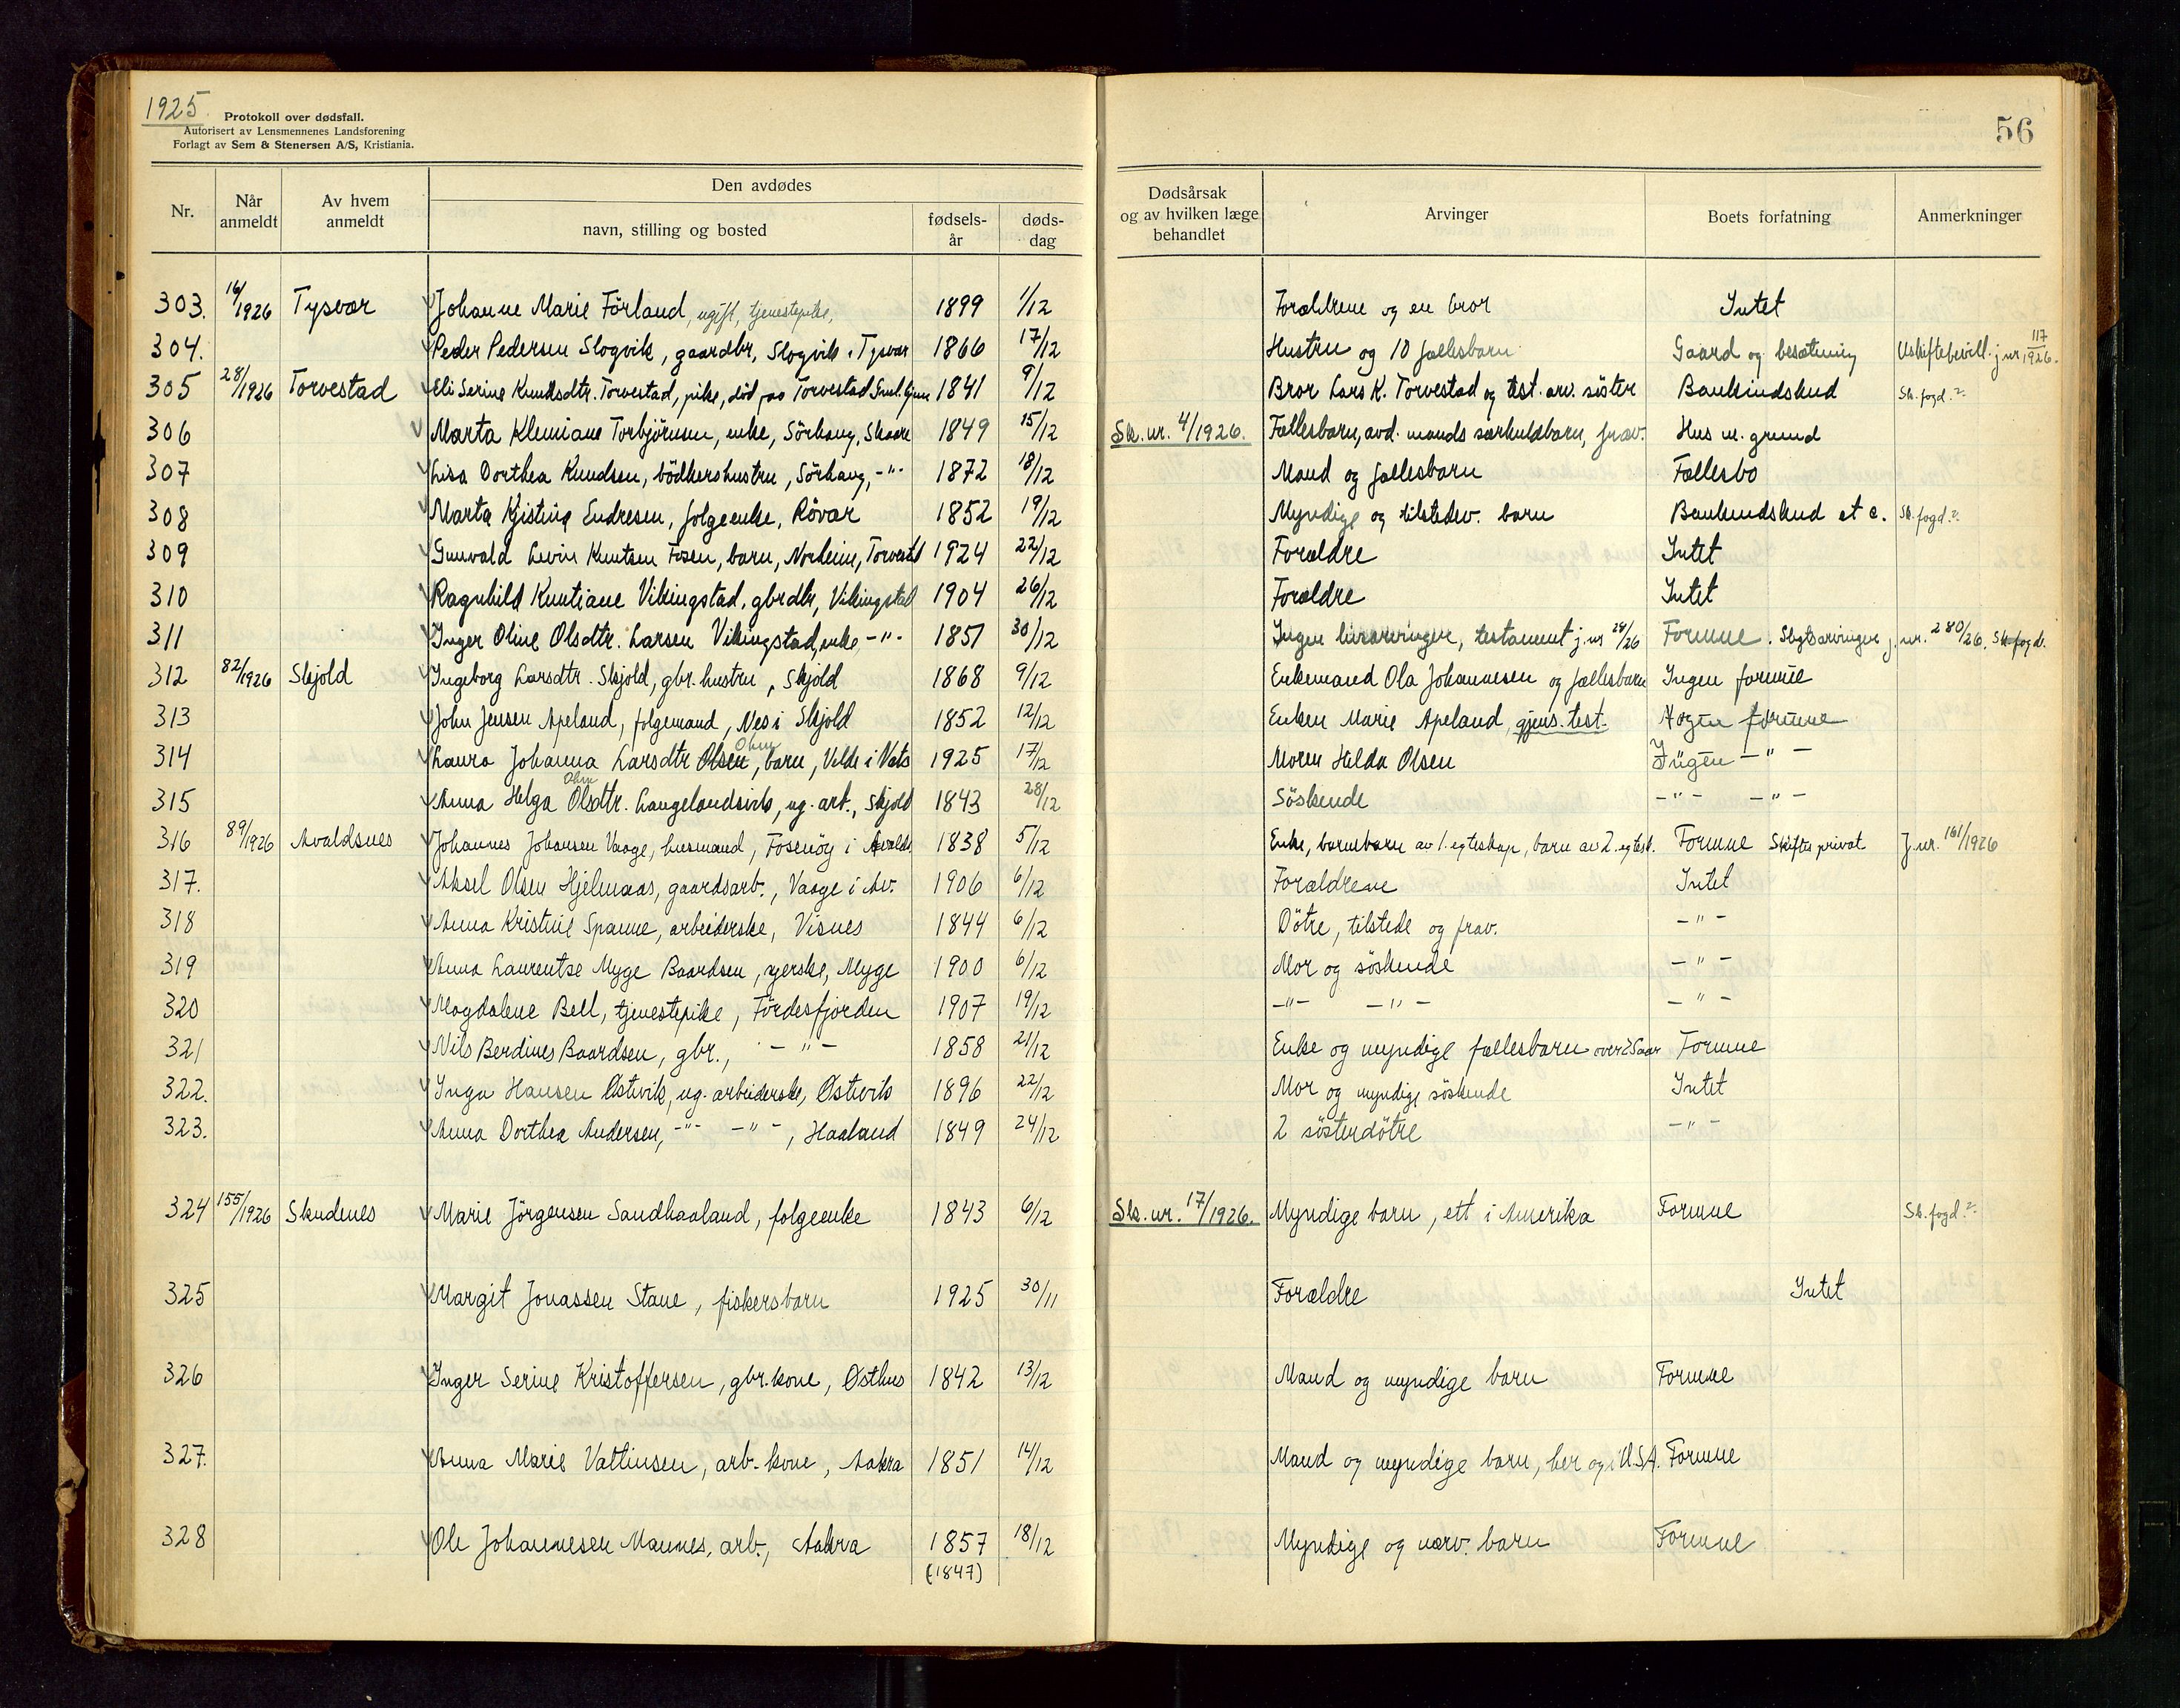 1925
Protokoll over dødsfall.
Autorisert av Lensmennenes Landsforening
Forlagt av Sem & Stenersen A/S, Kristiania.
56
Nr. Når anmeldt Av hvem anmeldt Den avdødes navn, stilling og bosted fødsels-år døds-dag Dødsårsak og av hvilken læge behandlet Arvinger Boets forfatning Anmerkninger
303. 16/1926 Tysvær Johanne Marie Förland, ugift, tjenestepike, 1899 1/12 Forældrene og en bror Intet
304. Peder Pedersen Slogvik, gaardbr, Slogvik i Tysvær 1866 17/12 Hustru og 10 fællesbarn Gaard og besætning Uskiftebevill. j nr 117/1926.
305 28/1926 Torvestad Eli Serine Knudsdtr. Torvestad, pike, död paa Torvestad 1841 9/12 Bror Lars K. Torvestad og test. arv. söster Bankindskud Sk. fogd.
306 Marta Klemiane Torbjörnsen, enke, Sörhaug, Skaare 1849 15/12 Sk. nr. 4/1926. Fællesbarn, avd. mands særkuldbarn, frav. Hus m. grund
307 Lisa Dorthea Knudsen, bödkershustru, Sörhaug, -"- 1872 18/12 Mand og fællesbarn Fællesbo
308 Marta Kjistina Endresen, folgeenke, Rövær 1852 19/12 Myndige og tilstedev. barn Bankindskud et c. Sk. fogd.
309 Gunvald Levin Knutsen Fosen, barn, Norheim, Torvestd 1924 22/12 Forældre Intet
310 Ragnhild Kuntiane Vikingstad, gbrdtr, Vikingstad 1904 26/12 Forældre Intet
311 Inger Oline Olsdtr. Larsen Vikingstad, enke -"- 1851 30/12 Ingen livsarvinger, testament j. nr 29/26 Formue. Slegtsarvinger j. nr. 280/26. Sk. fogd.
312 82/1926 Skjold Ingeborg Larsdtr. Skjold, gbr. hustru, Skjold 1868 9/12 Enkemand Ola Johannesen og fællesbarn Ingen formue
313 John Jensen Apeland, folgemand, Nes i Skjold 1852 12/12 Enken Marie Apeland, gjens. test. Nogen formue
314 Laura Johanna Larsdtr Olsen, barn, Velde i Vats 1925 17/12 Moren Helda Olsen Ingen -"-
315 Anna Helga Olsdtr. Langelandsvik, ug. arb., Skjold 1843 28/12 Söskende -"- -"-
316 89/1926 Avaldsnes Johannes Johansen Vaage, husmand, Fosenöy i Avalds 1838 5/12 Enke, barnebarn av 1. egteskap, barn av 2. egtesk. Formue Skiftes privat J. nr. 161/1926
317. Aksel Olsen Hjelmaas, gaardsarb., Vaage i Av. 1906 6/12 Forældrene Intet
318 Anna Kristine Spanne, arbeiderske, Visnes 1844 6/12 Dötre, tilstede og frav. -"-
319 Anna Laurentse Myge Baardsen, syerske, Myge 1900 6/12 Mor og söskende -"-
320 Magdalene Bell, tjenestepike, Fördesfjorden 1907 19/12 -"- -"- -"-
321 Nils Berdines Baardsen, gbr., -"- 1858 21/12 Enke og myndige fællesbarn over 25 aar Formue
322. Inga Hansen Östevik, ug. arbeiderske, Östevik 1896 22/12 Mor og myndige söskende Intet
323. Anna Dorthea Andersen, -"- -"-, Haaland 1849 24/12 2 sösterdötre -"-
324 155/1926 Skudenes Marie Jörgensen Sandhaaland, folgeenke 1843 6/12 Sk. nr. 17/1926. Myndige barn, ett i Amerika Formue Sk. fogd.
325 Margit Jonassen Stane, fiskersbarn 1925 30/11 Forældre Intet
326 Inger Serine Kristoffersen, gbr. kone, Östhus 1842 13/12 Mand og myndige barn Formue
327. Anna Marie Valtinsen, arb. kone, Aakra 1851 14/12 Mand og myndige barn, her og i U.S.A. Formue
328 Ole Johannesen Mannes, arb., Aakra 1857 18/12 Myndige og nærv. barn Formue
(1847)